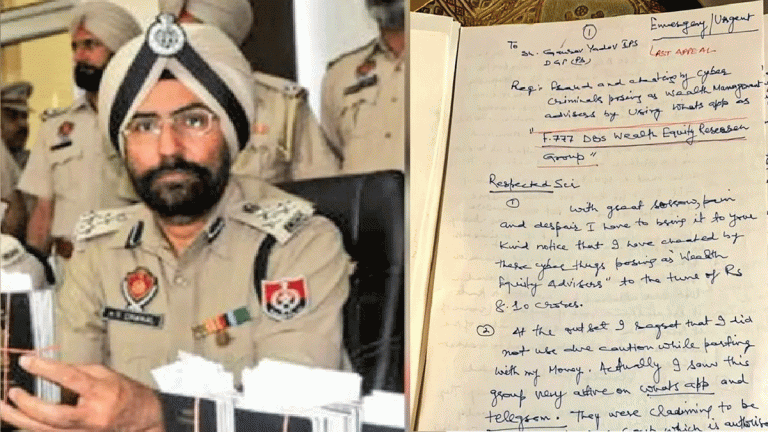 A.S. CHAHAL
①
Emergency/Urgent
LAST APPEAL
To
Sh. Gaurav Yadav IPS
DGP (Pb)
Reg:- Fraud and cheating by cyber
criminals posing as Wealth Management
advisers by using Whats app as
"F.777 DBS Wealth Equity Research
Group"
Respected Sir
①
with great sorrow, pain
and despair I have to bring it to your
kind notice that I have cheated by
these cyber thugs posing as "Wealth
Equity Advisers" to the tune of Rs
8.10 crores.
② At the outset I regret that I did
not use due caution while parting
with my Money. Actually I saw this
group very active on whats app and
telegram. They were claiming to be
which is authorise